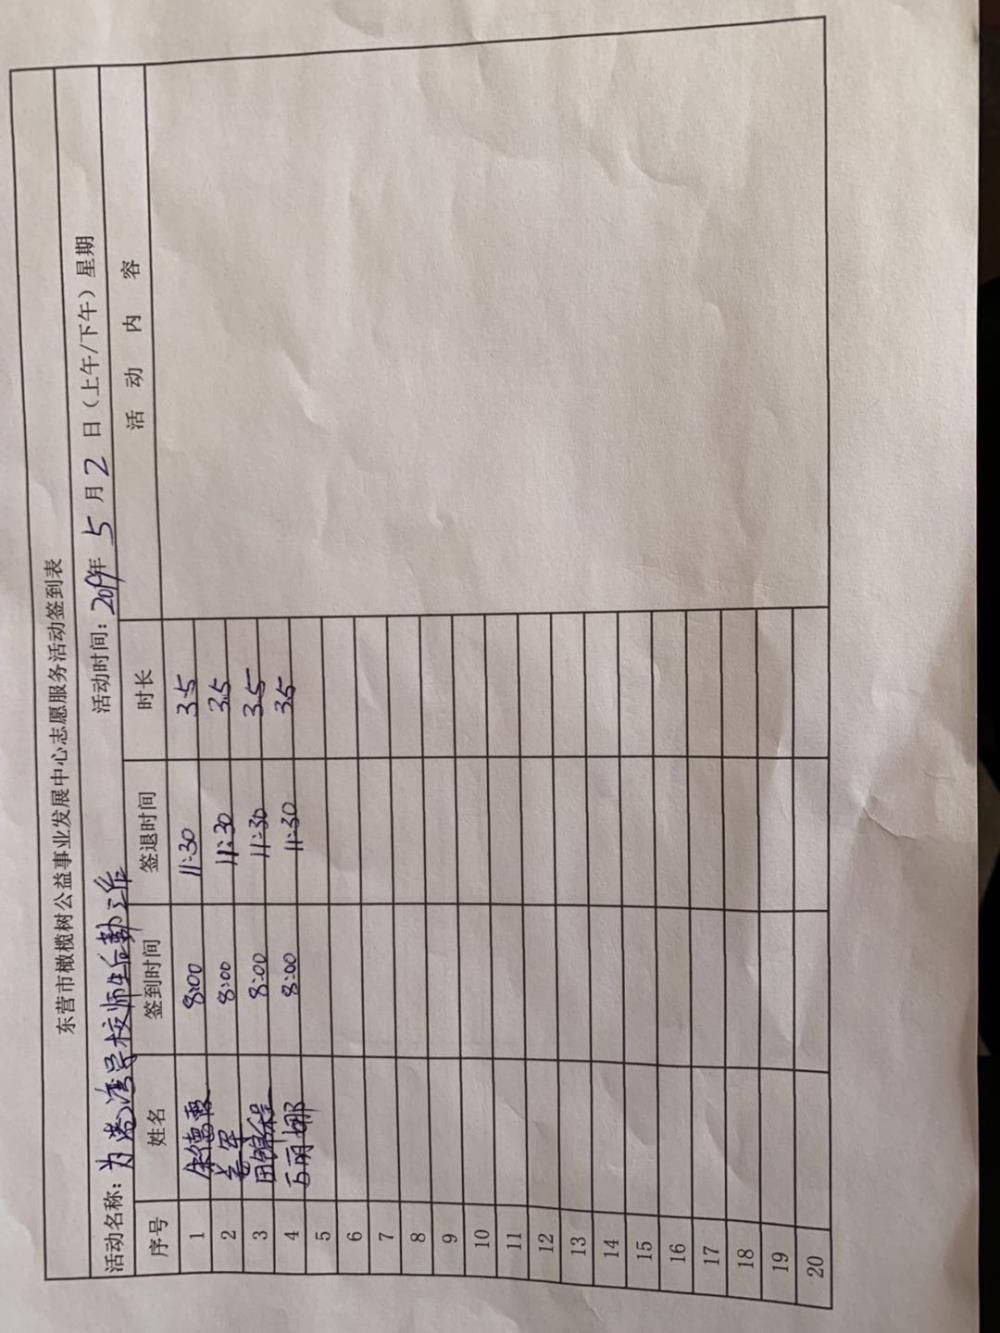 东营市橄榄树公益事业发展中心志愿服务活动签到表
活动名称：为港湾学校师生后勤工作 活动时间：2019年 5 月 2 日（上午/下午）星期
序号 姓名 签到时间 签退时间 时长 活动内容
1 朱德霞 8:00 11:30 3.5
2 军 8:00 11:30 3.5
3 田锦程 8:00 11:30 3.5
4 丽娜 8:00 11:30 3.5
5
6
7
8
9
10
11
12
13
14
15
16
17
18
19
20